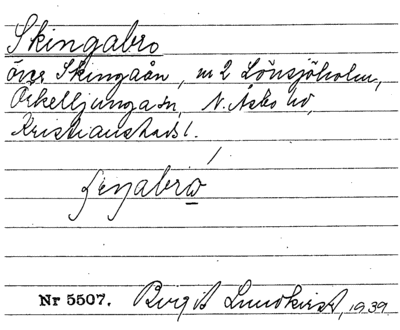 Skingabro
över Skingaån, nr 2 Lönsjöholm,
Örkelljunga sn, N. Åsbo hd,
Kristianstads l.
Nr 5507. Birgit Lundkvist, 1939